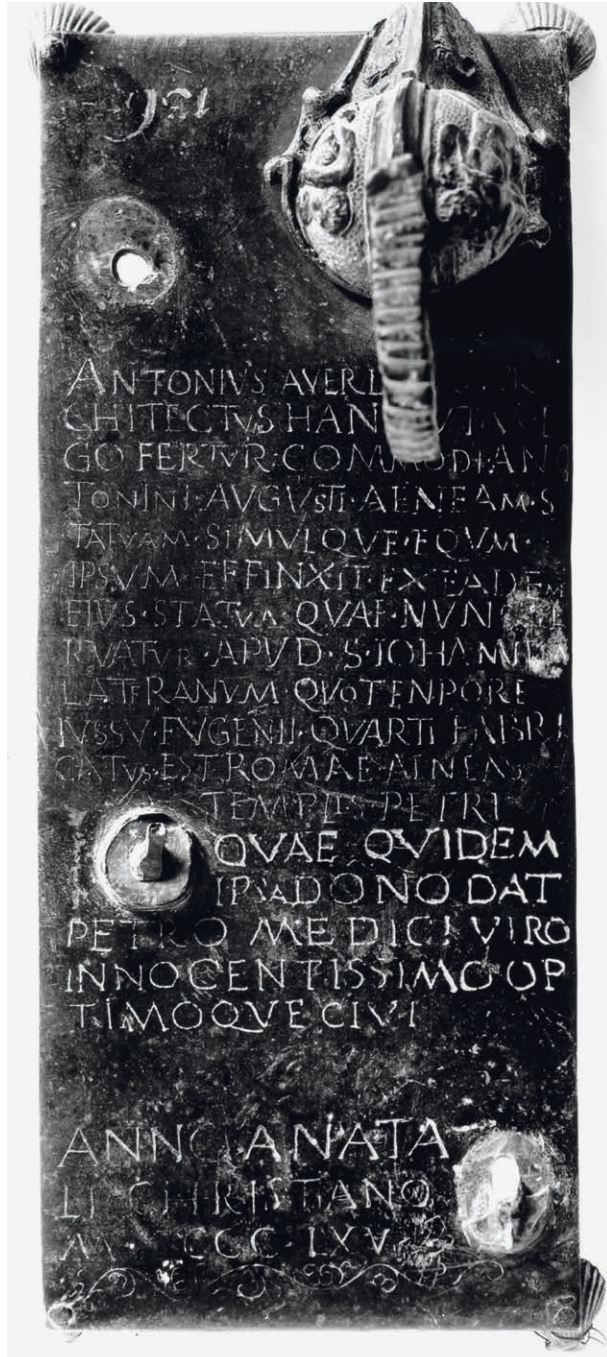 ANTONIVS AVERL
CHITECTVS HAN
GO FERTVR·COMMODI·AN
TONINI·AVGVSTI·AENEAM·S
TATVAM·SIMVLQVE·EQVM·
IPSVM·EFFINXIT·EX EADEM
EIVS·STATVA QVAE·NVN
RVATVR·APVD·S·IOHANNEM
LATERANVM QVOTENPORE
IVSSV·EVGENII·QVARTI FABRI
CATVS·EST ROMAE·AENEAS
TEMPLI PETRI
QVAE QVIDEM
IPSA DONO DAT
PETRO MEDICI VIRO
INNOCENTISSIMO OP
TIMOQVE CIVI
ANNO A NATA
LI CHRISTIANO
CCC·LXV